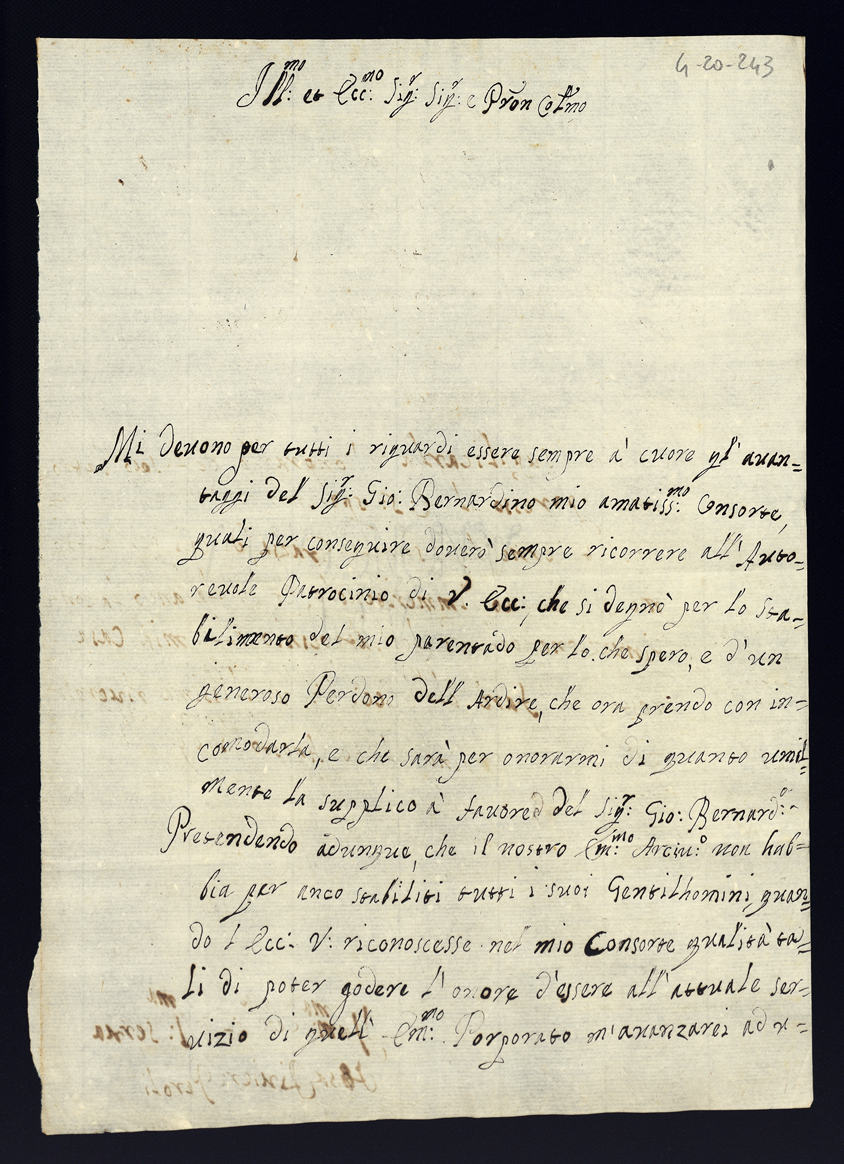 4-20-243
Ill:mo et Ecc:mo Sig:r Sig:r e Pron Colmo
Mi deuono per tutti i riguardi essere sempre à cuore gl'auan=
taggi del Sig:r Gio: Bernardino mio amatiss:mo Consorte,
quali per conseguire douerò sempre ricorrere all'Auto=
reuole Patrocinio di V. Ecc: che si degnò per lo sta=
bilimento del mio parentado per lo che spero, e d'un
generoso Perdono dell'Ardire, che ora prendo con in=
comodarla, e che sarà per onorarmi di quanto umil=
mente la supplico à fauore del Sig:r Gio: Bernard:o
Pretendendo adunque, che il nostro Em:mo Arciu:o non hab=
bia per anco stabiliti tutti i suoi Gentilhomini, quan=
do l'Ecc: V: riconoscesse nel mio Consorte qualità ta=
li di poter godere l'onore d'essere all'attuale ser=
uizio di quell'Em:mo Porporato m'auanzarei ad u=